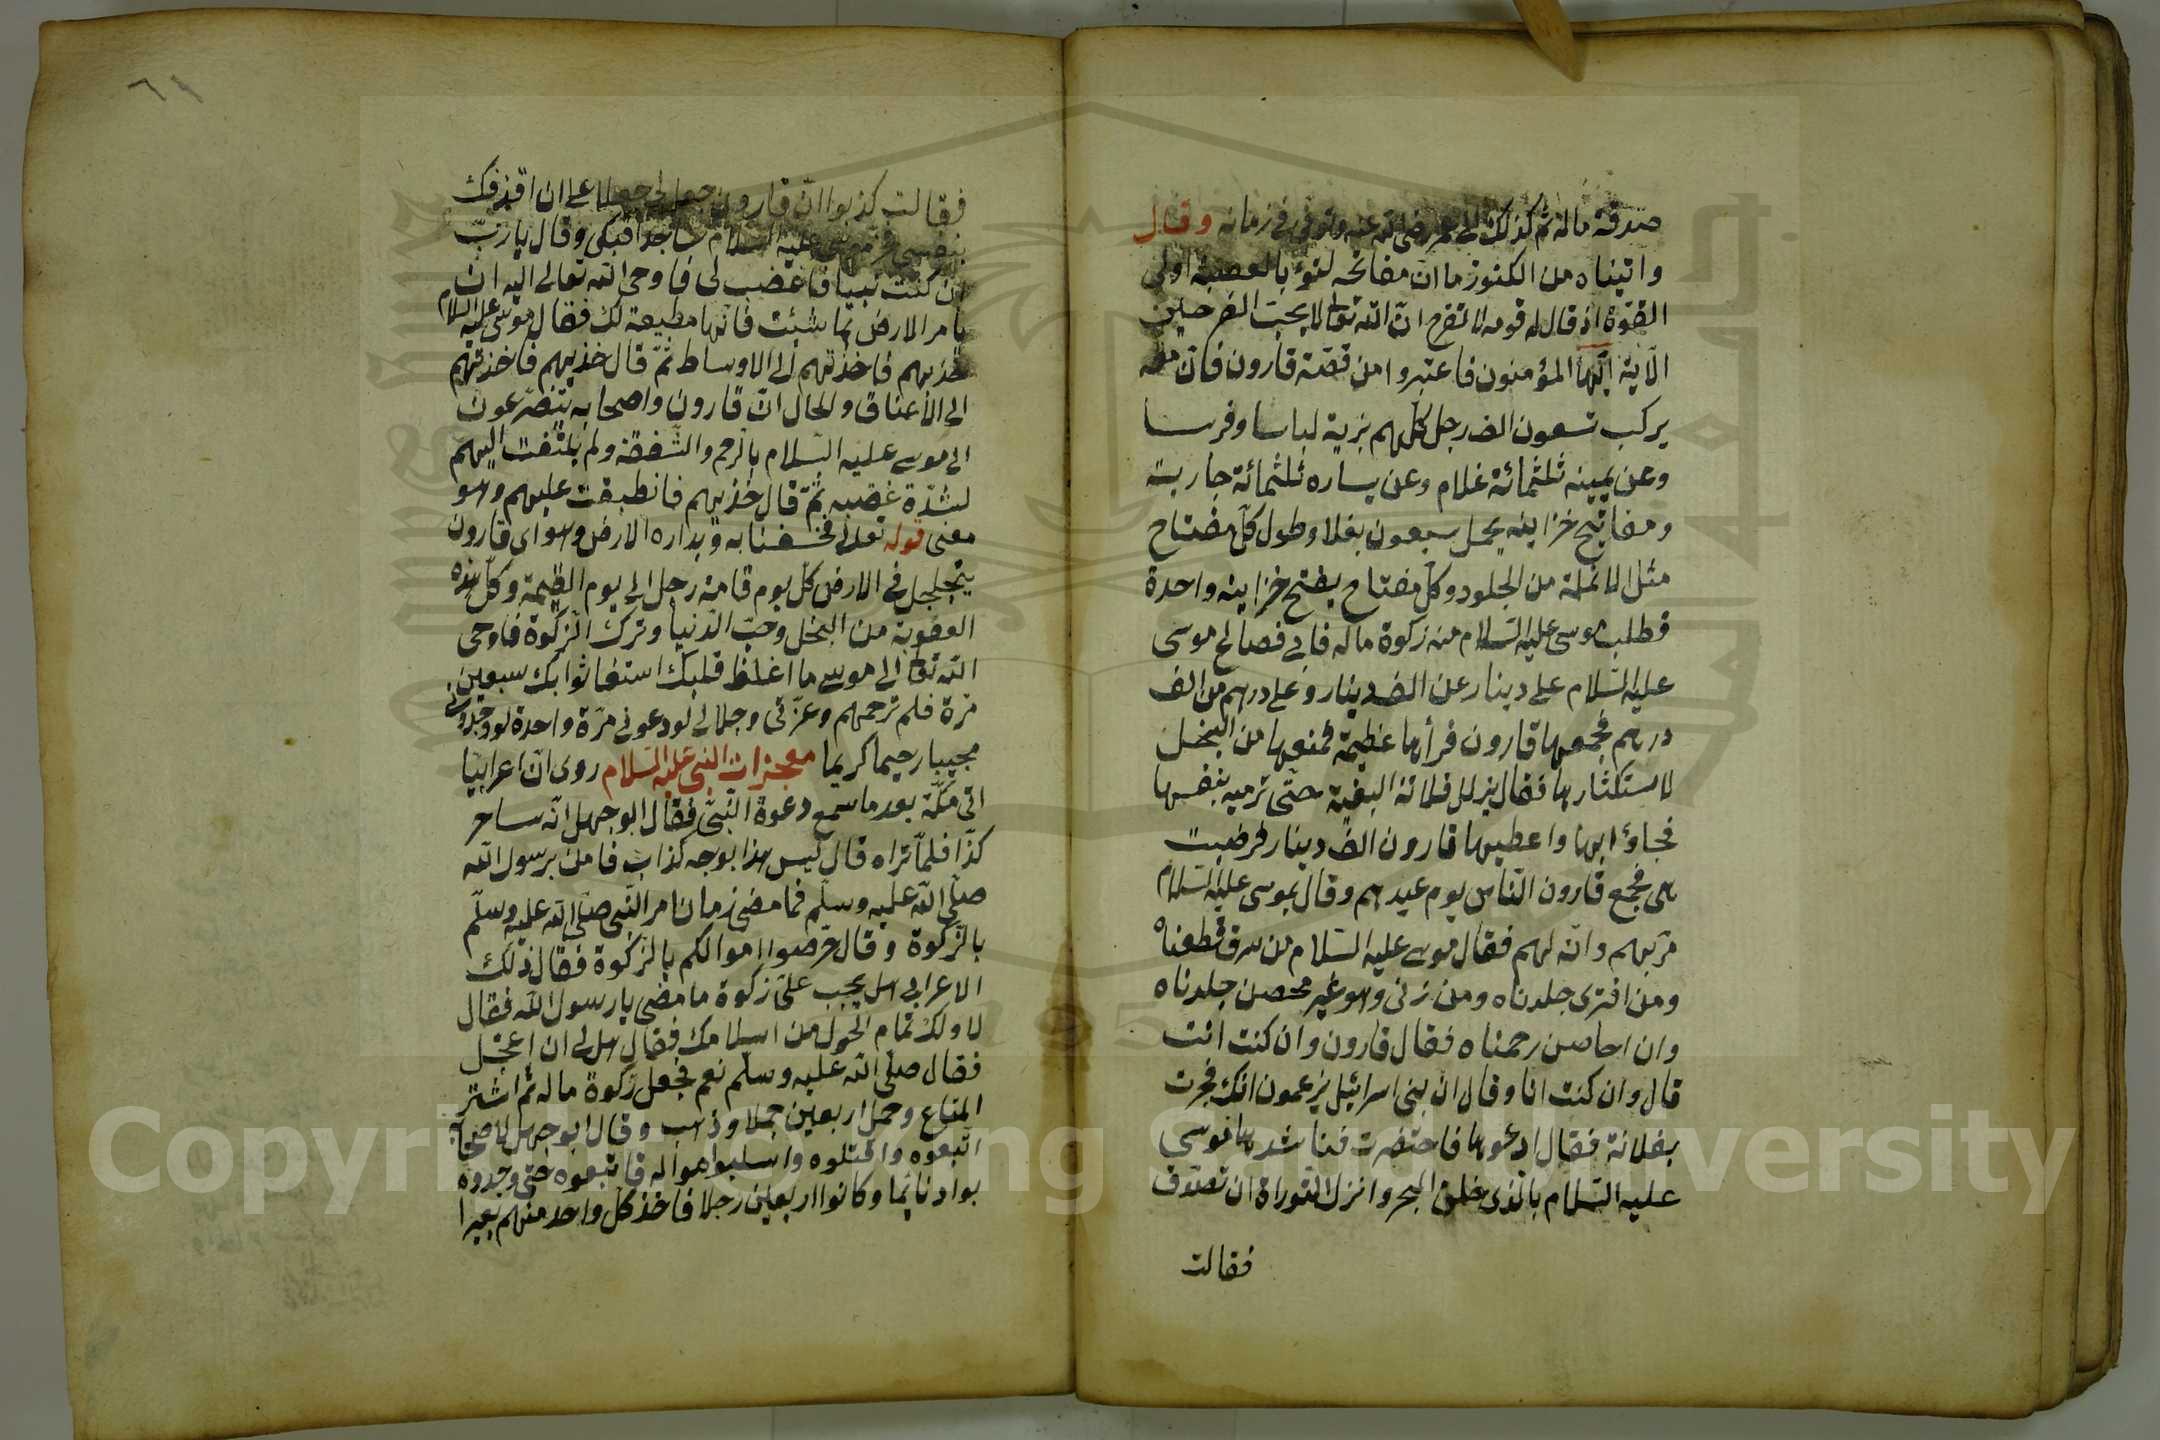 صدقة ماله ثم كذلك الى عمر رضى الله عنه وتوفى فى زمانه وقال
واتيناه من الكنوز ما ان مفاتحه لتنوء بالعصبة اولى
القوة اذ قال له قومه لا تفرح ان الله تعالى لا يحب الفرحين
الآية ايها المؤمنون فاعتبروا من قصة قارون فان
يركب تسعون الف رجل كلهم بزينة لباسا وفرسا
وعن يمينه ثلثمائة غلام وعن يساره ثلثمائة جارية
ومفاتيح خزاينه يحمل سبعون بغلا وطول كل مفتاح
مثل الانملة من الجلود وكل مفتاح يفتح خزاينه واحدة
فطلب موسى عليه السلام منه زكوة ماله فابى فصالح موسى
عليه السلام على دينار عن الف دينار وعلى درهم من الف
درهم فجمعها قارون فرأها عظيمة فمنعها من البخل
لاستكثارها فقال نزلل فلانة البغية حتى ترميه بنفسها
فجاؤا بها واعطيها قارون الف دينار فرضيت
هى فجمع قارون الناس يوم عيدهم وقال بموسى عليه السلام
مر بهم وانه لهم فقال موسى عليه السلام من سرق قطعناه
ومن افترى جلدناه ومن زنى وهو غير محصن جلدناه
وان احاصن رجمناه فقال قارون وان كنت انت
قال وان كنت انا وقال ان بنى اسرائيل يزعمون انك فجرت
بفلانة فقال ادعوها فاحتضرت فناشدها موسى
عليه السلام بالذى خلق البحر وانزل التوراة ان تصدق
فقالت
٦١
فقالت كذبوا ان قارون جعل لى جعلا على ان اقذفك
بنفسى فخر موسى عليه السلام ساجدا فبكى وقال يا رب
ان كنت نبيا فاغضب لى فاوحى الله تعالى اليه ان
يا مر الارض بما شئت فانها مطيعة لك فقال موسى عليه السلام
خذيهم فاخذتهم الى الاوساط ثم قال خذيهم فاخذتهم
الى الاعناق والحال ان قارون واصحابه يتضرعون
الى موسى عليه السلام بالرحم والشفقة ولم يلتفت اليهم
لشدة غضبه ثم قال خذيهم فانطبقت عليهم وهو
معنى قوله تعالى فخسفنا به وبداره الارض وهو اى قارون
يتجلجل فى الارض كل يوم قامة رجل الى يوم القيمة وكل هذه
العقوبة من البخل وحب الدنيا وترك الزكوة فاوحى
الله تعالى الى موسى ما اغلظ قلبك استغاثوا بك سبعين
مرة فلم ترحمهم وعزتى وجلالى لو دعونى مرة واحدة لوجدونى
مجيبا رحيما كريما معجزات النبى عليه السلام روى ان اعرابيا
اتى مكة بعد ما سمع دعوة النبى فقال ابو جهل انه ساحر
كذا فلما تراه قال ليس هذا بوجه كذاب فامن برسول الله
صلى الله عليه وسلم فما مضى زمان امر النبى صلى الله عليه وسلم
بالزكوة وقال حرصوا اموالكم بالزكوة فقال ذلك
الاعرابى هل يجب على زكوة ما مضى يا رسول الله فقال
لا ولك تمام الحول من اسلامك فقال هل لى ان اعجل
فقال صلى الله عليه وسلم نعم فجعل زكوة ماله ثم اشتر
المتاع وحمل اربعين جملا وذهب وقال ابو جهل لاصحابه
اتبعوه واقتلوه واسلبوا امواله فاتبعوه حتى وجدوه
بواد نائما وكانوا اربعين رجلا فاخذ كل واحد منهم بعيرا
Copyright © King Saud University